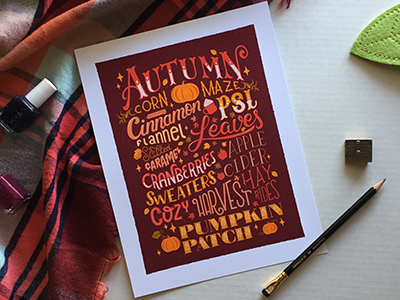 AUTUMN
CORN MAZE
Cinnamon PSL
flannel Leaves
Salted
CARAMEL APPLE
CRANBERRIES CIDER
SWEATERS HAY
COZY HARVEST RIDES
PUMPKIN
PATCH